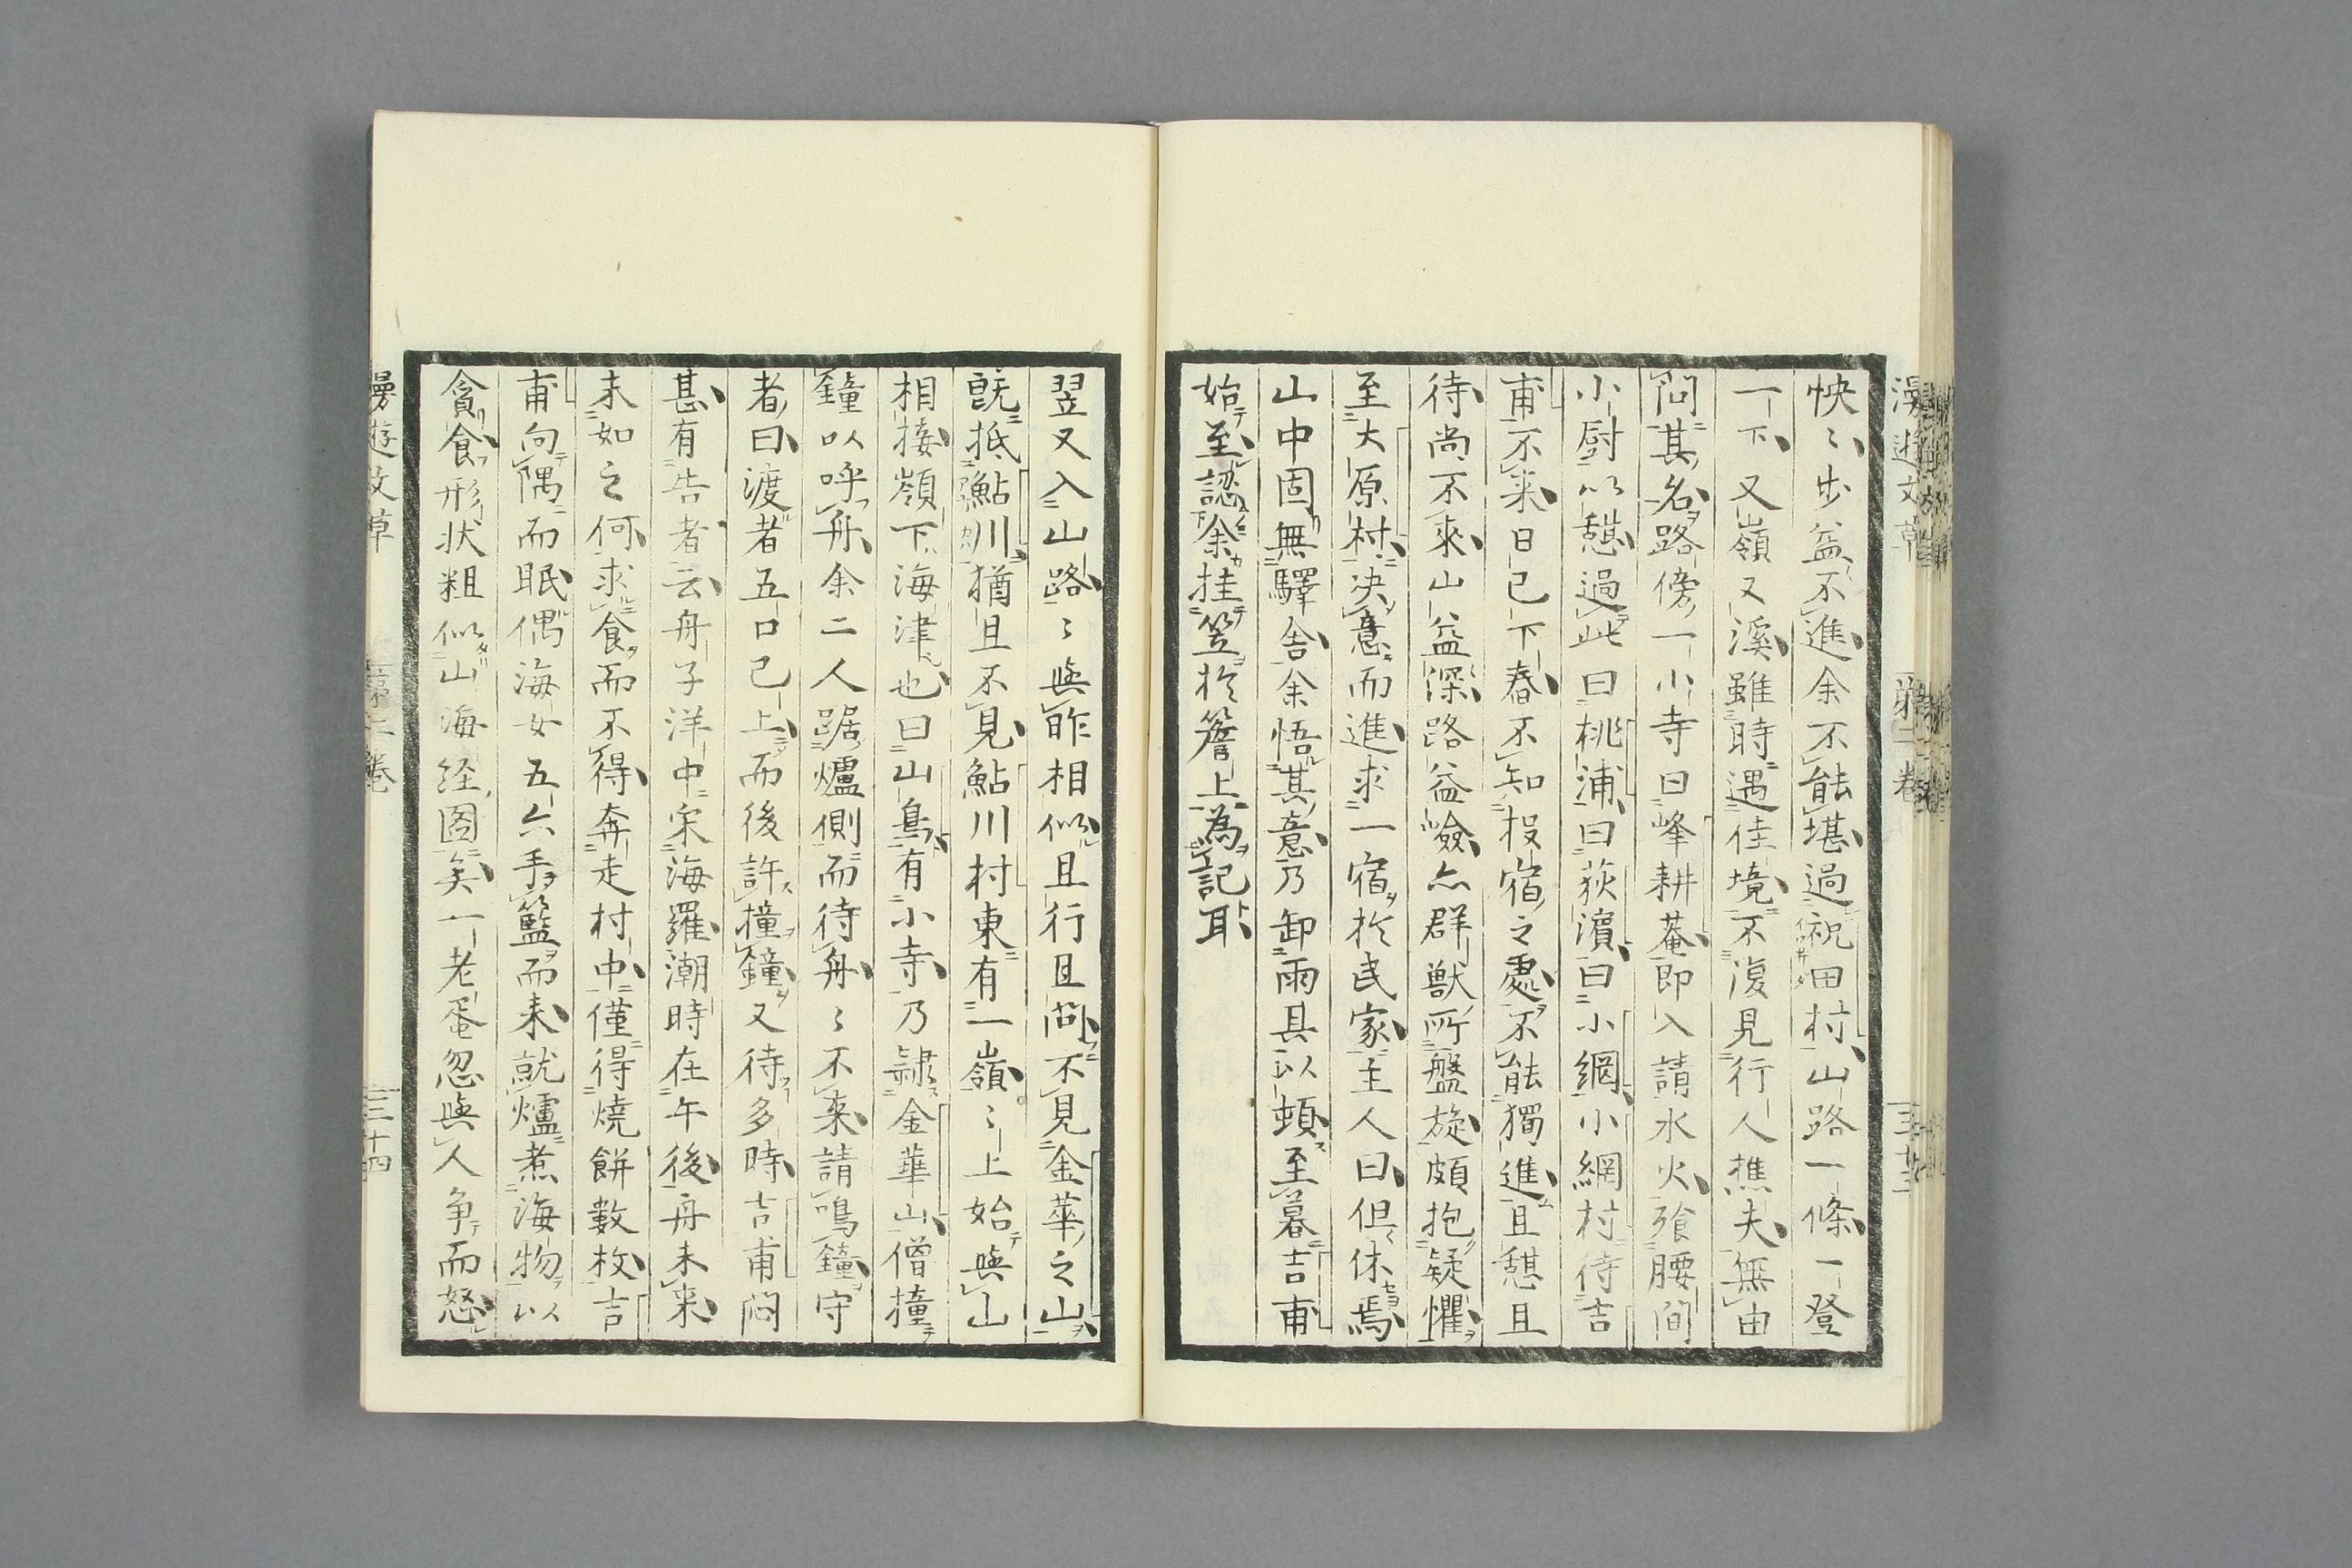 怏〻步益不進余不能堪過祝田村山路一條一登
一下又嶺又溪雖時遇佳境不復見行人樵夫無由
問其名路傍一小寺曰峰耕菴即入請水火飡腰間
小厨以憩過此曰桃浦曰荻濵曰小網小網村待吉
甫不来日已下舂不知投宿之處不能獨進且憩且
待尚不来山益深路益嶮亦群獣所盤旋頗抱疑懼
至大原村决意而進求一宿於民家主人曰但休焉
山中固無驛舎余悟其意乃卸雨具以頓至暮吉甫
始至認余挂笠於簷上為記耳
翌又入山路〻與昨相似且行且問不見金華之山
既抵鮎川猶且不見鮎川村東有一嶺〻上始與山
相接嶺下海津也曰山鳥有小寺乃隷金華山僧撞
鐘以呼舟余二人踞爐側而待舟〻不来請鳴鐘守
者曰渡者五口已上而後許撞鐘又待多時吉甫悶
甚有告者云舟子洋中采海羅潮時在午後舟未来
未如之何求食而不得奔走村中僅得燒餅數枚吉
甫向隅而眠偶海女五六手籃而来就爐煮海物以
貪食形状粗似山海経圖矣一老蜑忽與人争而怒
漫遊文草
第二卷
三十四